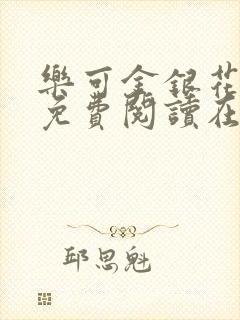 樂可金銀花
免費閱讀在
邱思魁